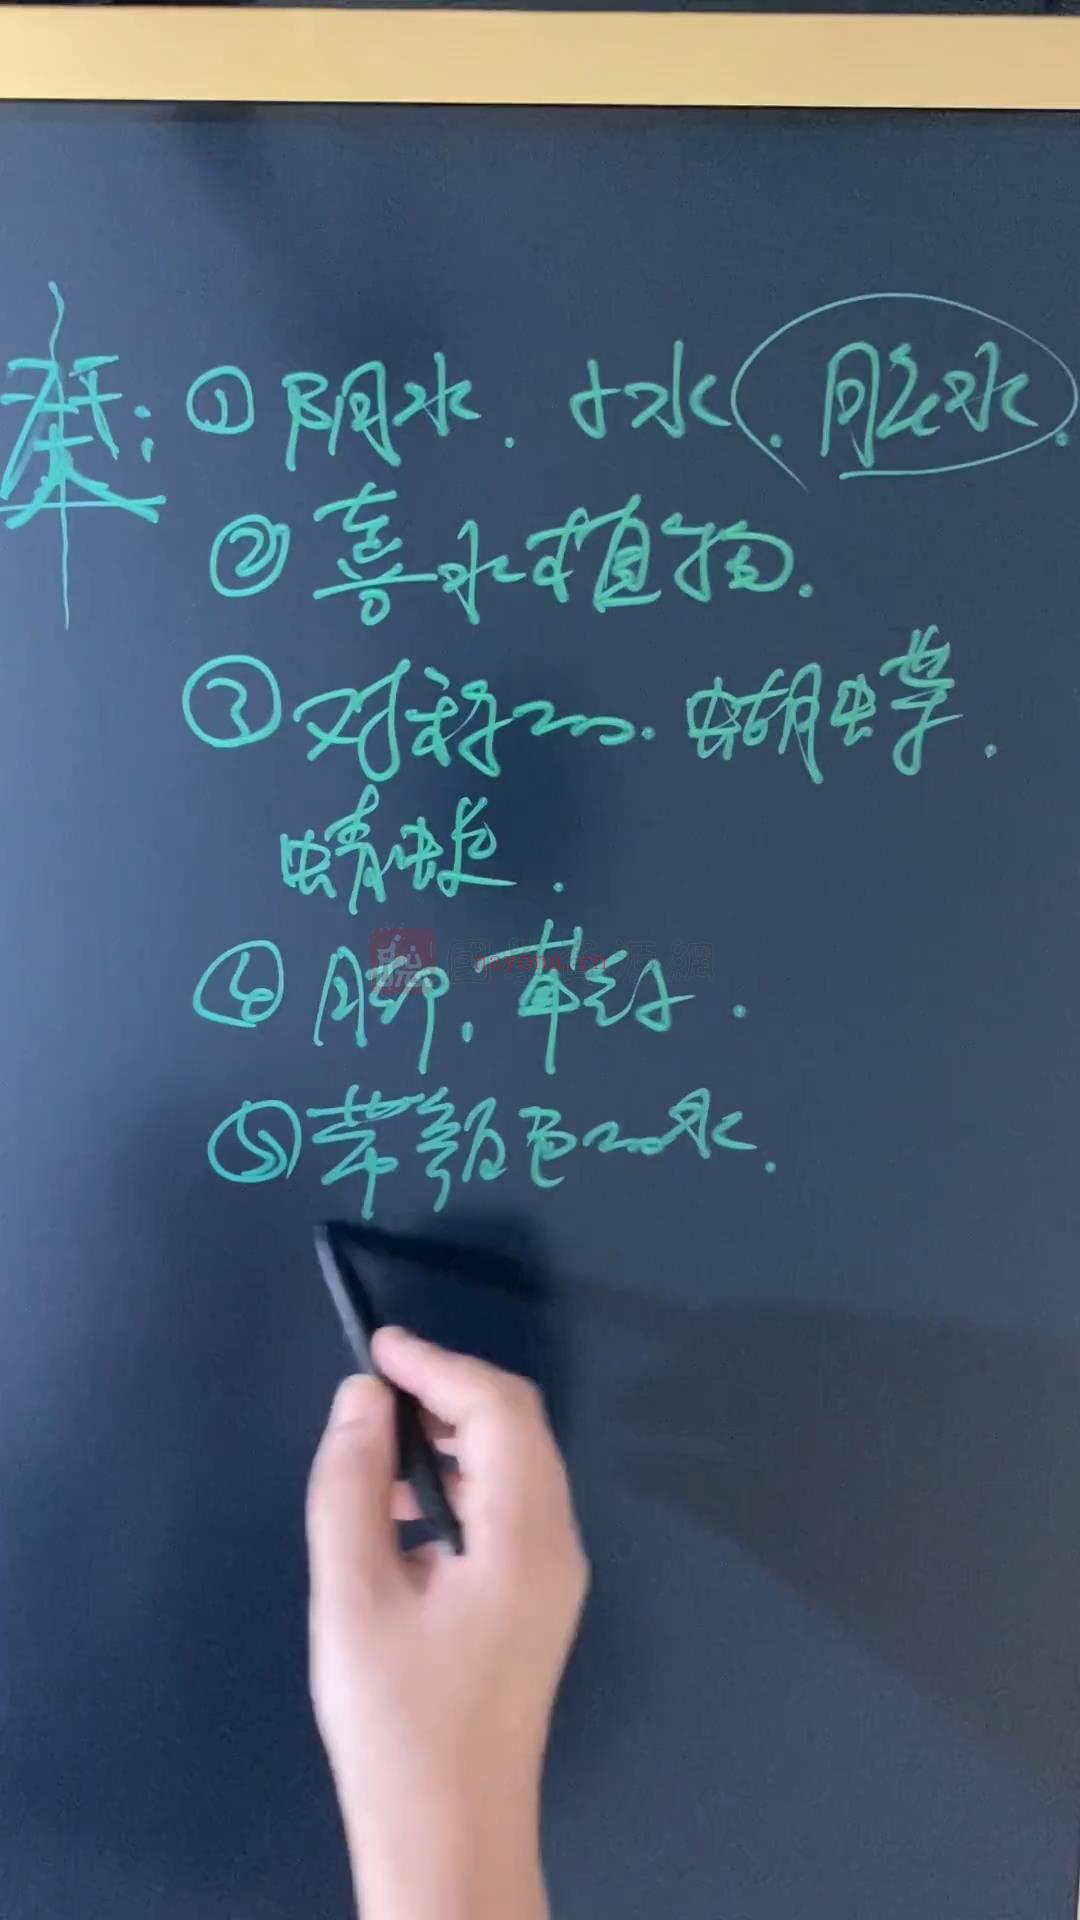 癸：①阴水．小水．脏水．
②喜水植物．
③对称的．蝴蝶．
蜻蜓．
④脚，鞋子．
⑤带颜色的水．
nayona.cn